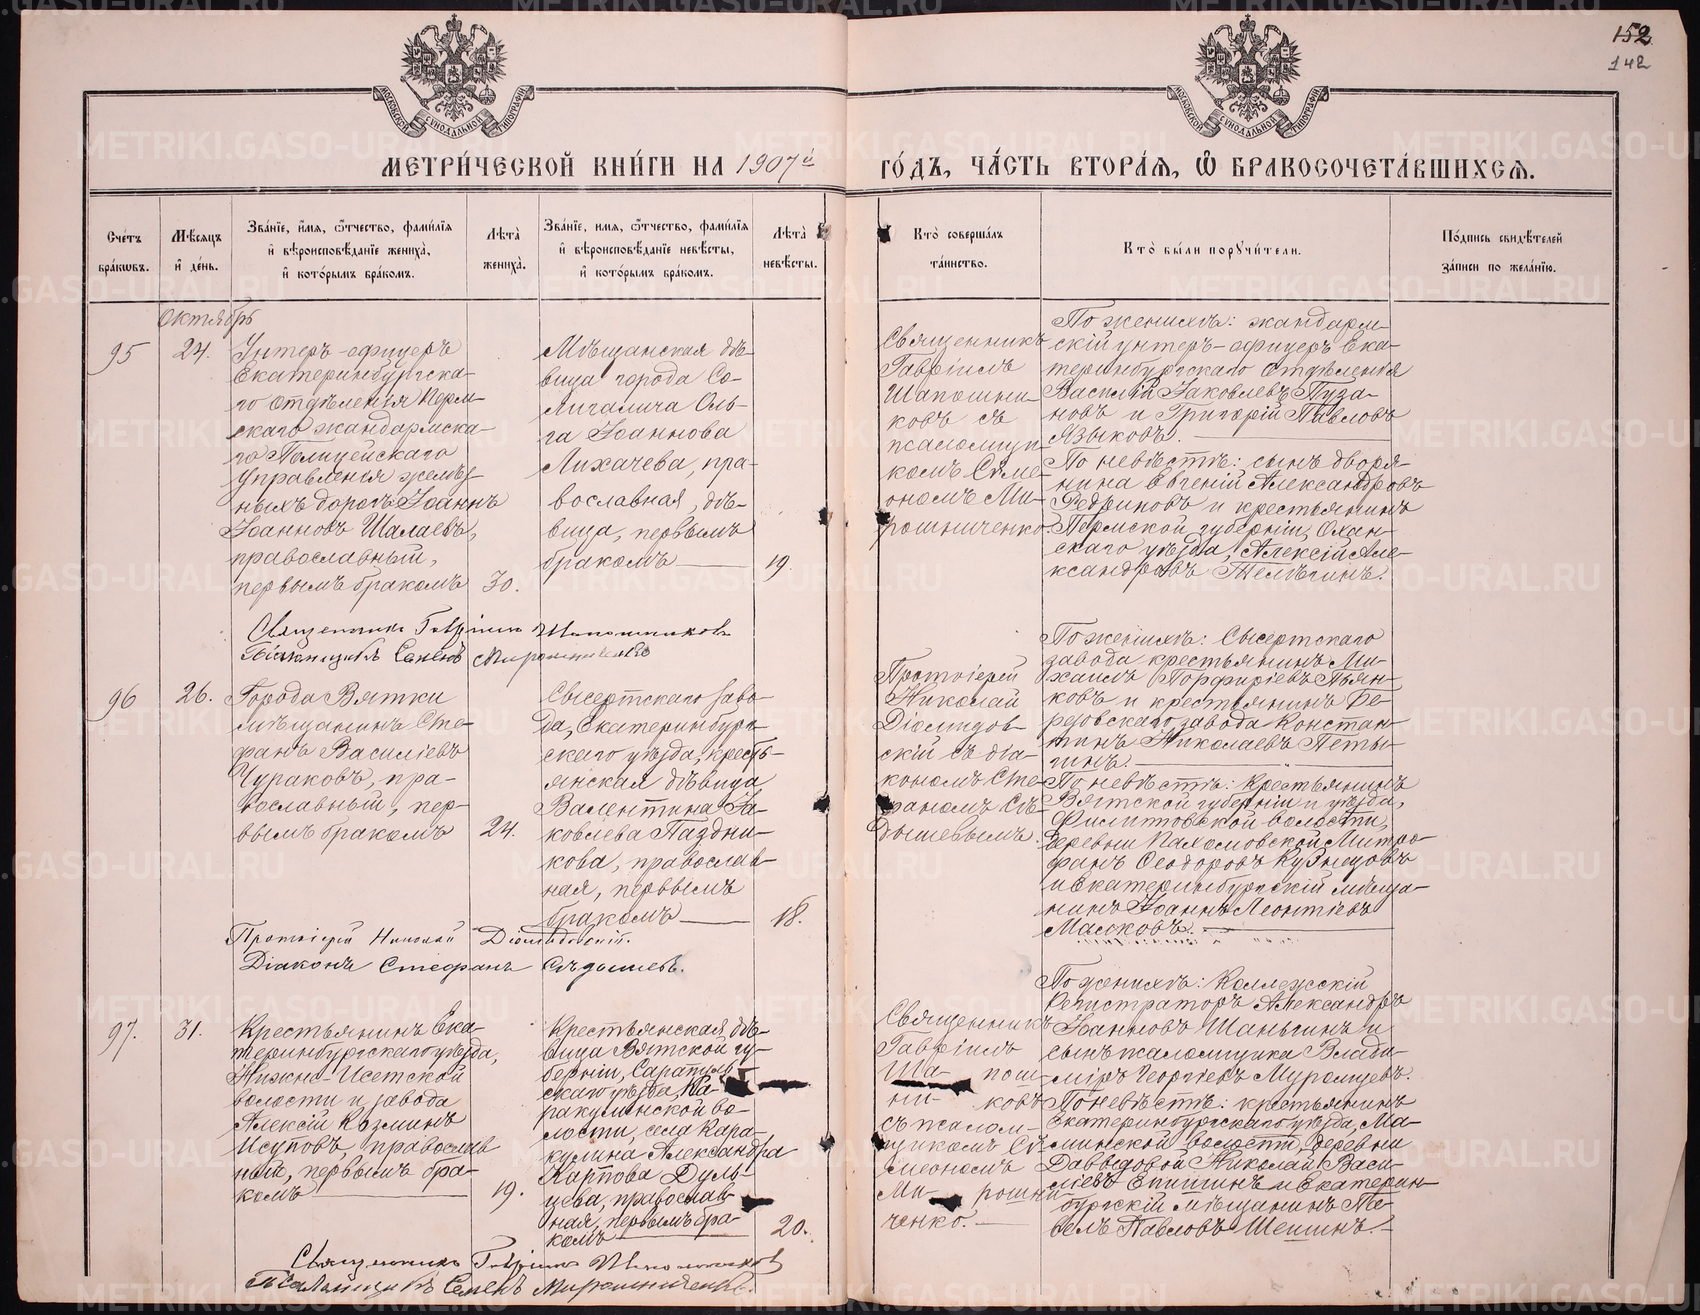 152
142
МОСКОВСКОЙ СѴНОДАЛЬНОЙ ТИПОГРАФІИ
МОСКОВСКОЙ СѴНОДАЛЬНОЙ ТИПОГРАФІИ
МЕТРИ́ЧЕСКОЙ КНИ́ГИ НА 1907й ГО́ДЪ, ЧА́СТЬ ВТОРА́Я, Ѽ БРАКОСОЧЕТА́ВШИХСЯ.
Сче́тъ
бра́кѡвъ.
Мѣ́сяцъ
и҆ де́нь.
Зва́нїе, и҆́мя, ѻ҆́тчество, фами́лїя
и҆ вѣроисповѣ́данїе жениха̀,
и҆ кото́рымъ бра́комъ.
Лѣта̀
жениха̀.
Зва́нїе, имя, ѻ҆́тчество, фами́лїя
и҆ вѣроисповѣ́данїе невѣ́сты,
и҆ кото́рымъ бра́комъ.
Лѣта̀
невѣ́сты.
Кто̀ соверша́лъ
та́инство.
Кто̀ бы́ли порꙋчи́тели.
По́дпись свидѣ́телей
за́писи по жела́нїю.
Октябрь
95
24.
Унтеръ-офицеръ
Екатеринбургска-
го отдѣленія Перм-
скаго жандармска-
го Полицейскаго
Управленія желѣз-
ныхъ дорогъ Іоаннъ
Іоанновъ Шалаевъ,
православный,
первымъ бракомъ
30.
Мѣщанская дѣ-
вица города Со-
лигалича Оль-
га Іоаннова
Лихачева, пра-
вославная, дѣ-
вица, первымъ
бракомъ
19.
Священникъ
Гавріилъ
Шапошни-
ковъ съ
псаломщи-
комъ Симе-
ономъ Ми-
рошниченко
По женихѣ: жандарм-
скій унтеръ-офицеръ Ека-
теринбургскаго отдѣленія
Василій Іаковлевъ Пуза-
новъ и Григорій Павловъ
Языковъ.
По невѣстѣ: сынъ дворя-
нина Евгеній Александровъ
и крестьянинъ
Пермской губерніи, Охан-
скаго уѣзда, Алексій Але-
ксандровъ Телѣгинъ.
Священникъ Гавріилъ Шапошниковъ
Псаломщикъ Семенъ Мирошниченко
96
26.
Города Вятки
мѣщанинъ Сте-
фанъ Василіевъ
Чураковъ, пра-
вославный, пер-
вымъ бракомъ
24.
Сысертскаго заво-
да, Екатеринбург-
скаго уѣзда, кресть-
янская дѣвица
Валентина Іа-
ковлева Паздни-
кова, православ-
ная, первымъ
бракомъ
18.
Протоіерей
Николай
Діомидов-
скій съ діа-
кономъ Сте-
фаномъ Сѣ-
дышевымъ.
По женихѣ: Сысертскаго
завода крестьянинъ Ми-
хаилъ Порфиріевъ Пьян-
ковъ и крестьянинъ Бе-
резовскаго завода Констан-
тинъ Николаевъ Петы-
гинъ.
По невѣстѣ: крестьянинъ
Вятской губерніи и уѣзда,
Филипповской волости,
деревни Пахомовской Митро-
фанъ Ѳеодоровъ Кузнецовъ
и Екатеринбургскій мѣща-
нинъ Іоаннъ Леонтіевъ
Масковъ.
Протоіерей Николай Діомидовскій.
Діаконъ Стефанъ Сѣдышевъ.
97.
31.
Крестьянинъ Ека-
теринбургскаго уѣзда,
Нижне-Исетской
волости и завода
Алексій Козминъ
Исуповъ, православ-
ный, первымъ бра-
комъ
19.
Крестьянская дѣ-
вица Вятской гу-
берніи, Сарапуль-
скаго уѣзда, Ка-
ракулинской во-
лости, села Кара-
кулина Александра
Карпова Дуль-
цева, православ-
ная, первымъ бра-
комъ
20.
Священникъ
Гавріилъ
Ша- пош-
ни- ковъ
съ псалом-
щикомъ Си-
меономъ
Ми- рошни-
ченко.
По женихѣ: Коллежскій
Регистраторъ Александръ
Іоанновъ Шаньгинъ и
сынъ псаломщика Влади-
міръ Георгіевъ Муромцевъ.
По невѣстѣ: крестьянинъ
Екатеринбургскаго уѣзда, Ма-
минской волости, деревни
Давыдовой Николай Васи-
ліевъ Епишинъ и Екатерин-
бургскій мѣщанинъ Па-
велъ Павловъ Шешинъ.
Священникъ Гавріилъ Шапошниковъ
Псаломщикъ Семенъ Мирошниченко.
METRIKI.GASO-URAL.RU